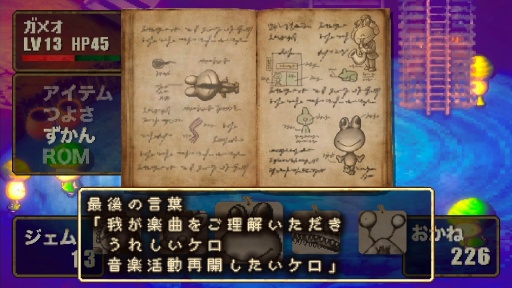 ガメオ
LV13 HP45
アイテム
つよさ
ずかん
ROM
最後の言葉
「我が楽曲をご理解いただき
うれしいケロ
音楽活動再開したいケロ」
ジェム
13
おかね
226